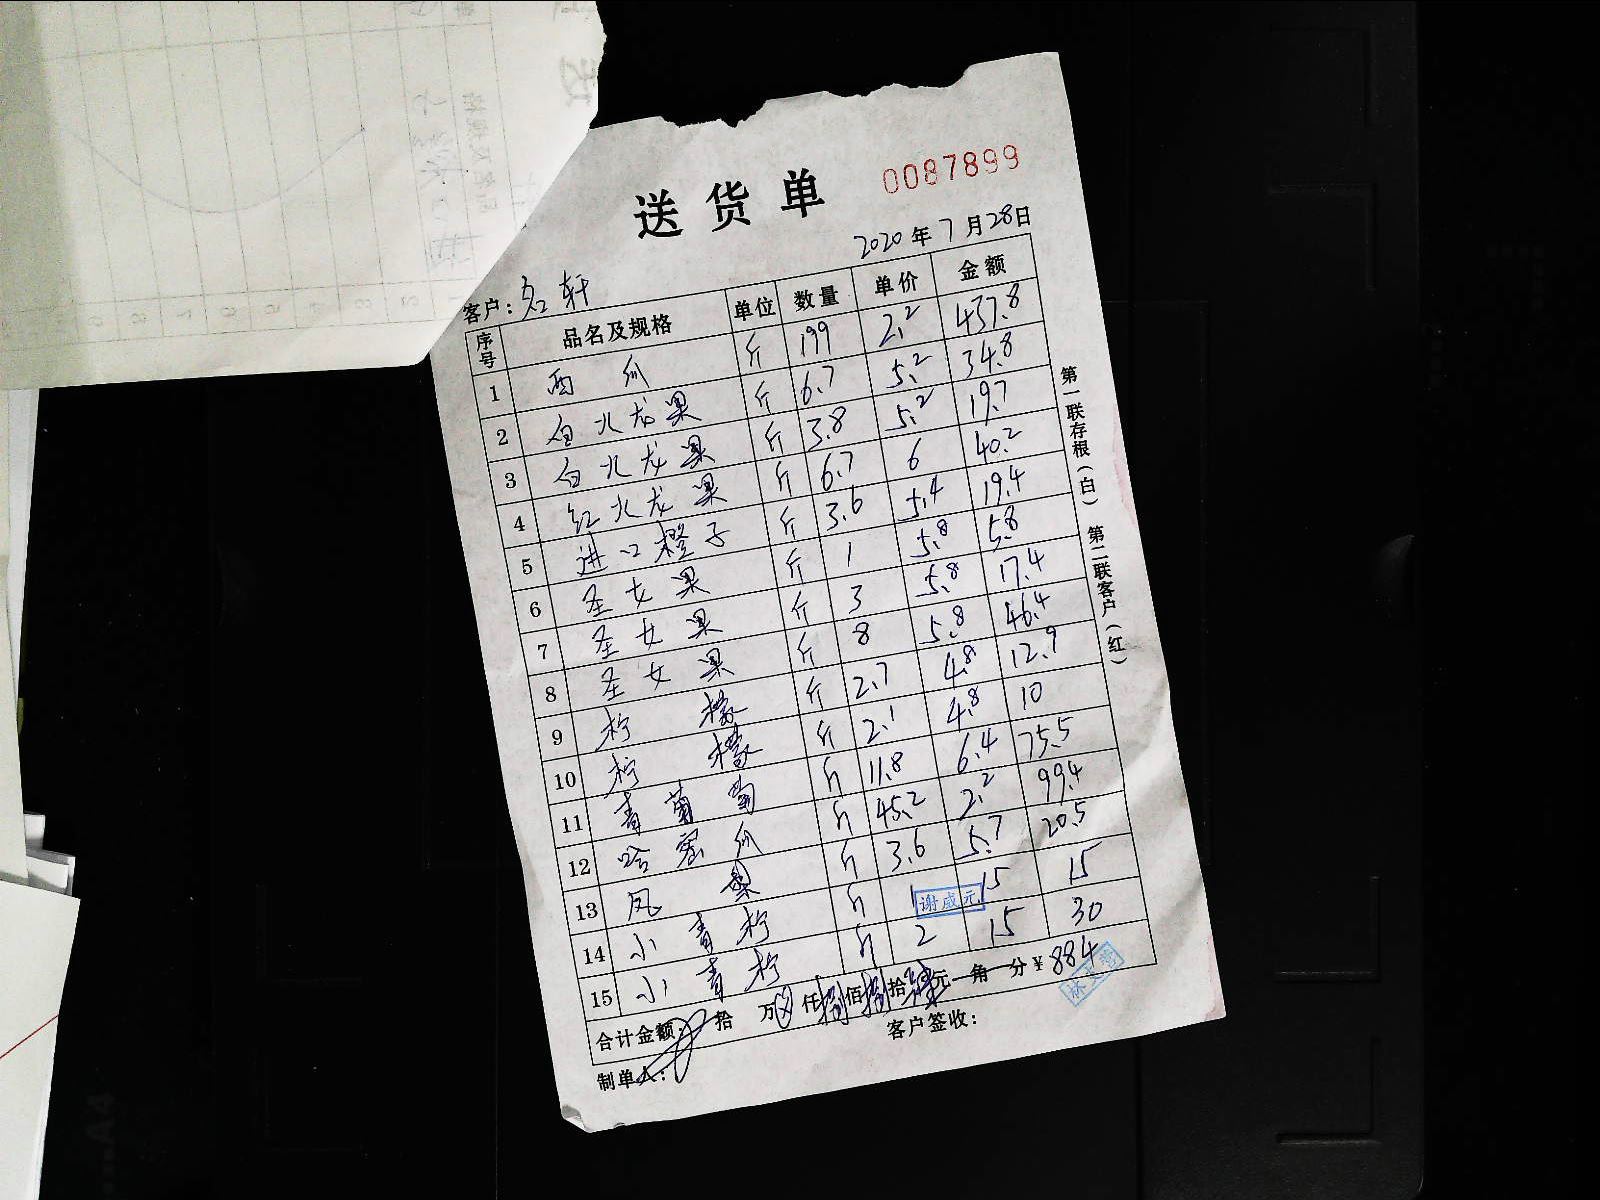 送货单
0087899
2020年7月28日
客户：名轩
序号 品名及规格 单位 数量 单价 金额
1 西瓜 斤 199 2.2 437.8
2 白火龙果 斤 6.7 5.2 34.8
3 白火龙果 斤 3.8 5.2 19.7
4 红火龙果 斤 6.7 6 40.2
5 进口橙子 斤 3.6 5.4 19.4
6 圣女果 斤 1 5.8 5.8
7 圣女果 斤 3 5.8 17.4
8 圣女果 斤 8 5.8 46.4
9 柠檬 斤 2.7 4.8 12.9
10 柠檬 斤 2.1 4.8 10
11 青葡萄 斤 11.8 6.4 75.5
12 哈密瓜 斤 45.2 2.2 99.4
13 凤梨 斤 3.6 5.7 20.5
14 小青柠 斤 1 15 15
15 小青柠 斤 2 15 30
谢成元
合计金额： 拾 万 仟 捌 佰 捌 拾 肆 元 角 分 ¥ 884
制单人： 客户签收：
第一联存根（白） 第二联客户（红）